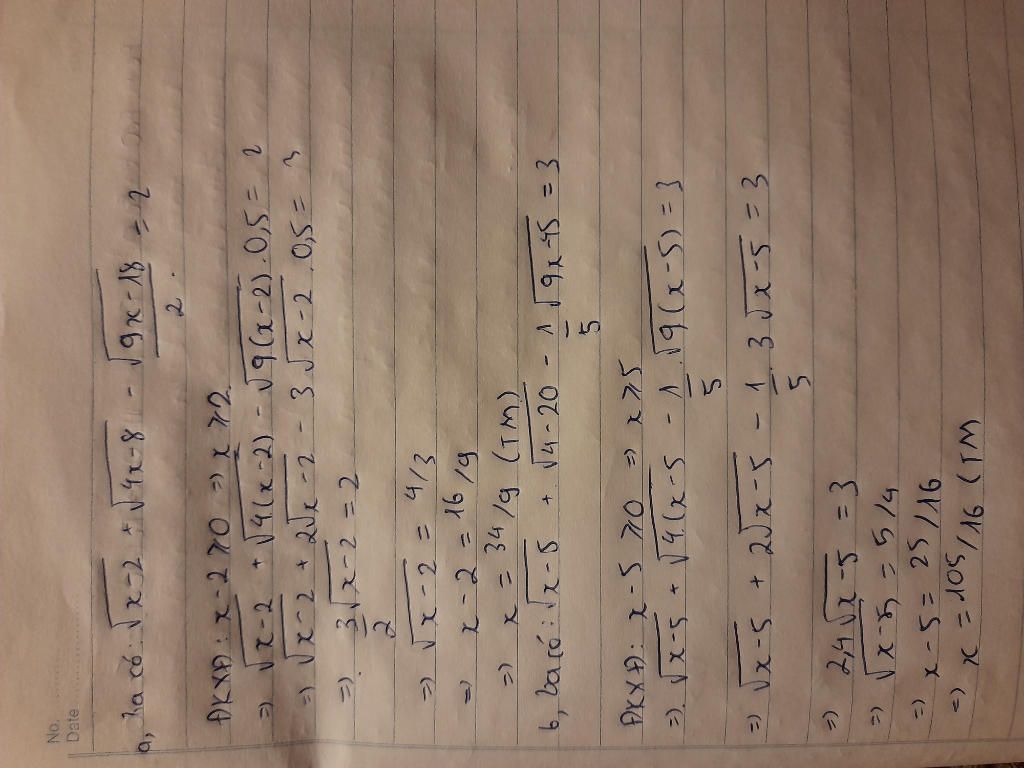 No.
Date
a, ta có: √x-2 + √4x-8 - √9x-18/2 = 2
ĐKXĐ: x-2 ≥ 0 => x ≥ 2
=> √x-2 + √4(x-2) - √9(x-2) . 0,5 = 2
=> √x-2 + 2√x-2 - 3√x-2 . 0,5 =
=> 3/2 √x-2 = 2
=> √x-2 = 4/3
=> x-2 = 16/9
=> x = 34/9 (TM)
b, ta có: √x-5 + √4-20 - 1/5 √9x-45 = 3
ĐKXĐ: x-5 ≥ 0 => x ≥ 5
=> √x-5 + √4(x-5 - 1/5 √9(x-5) = 3
=> √x-5 + 2√x-5 - 1/5 3√x-5 = 3
=> 2,4√x-5 = 3
=> √x-5 = 5/4
=> x-5 = 25/16
=> x = 105/16 (TM